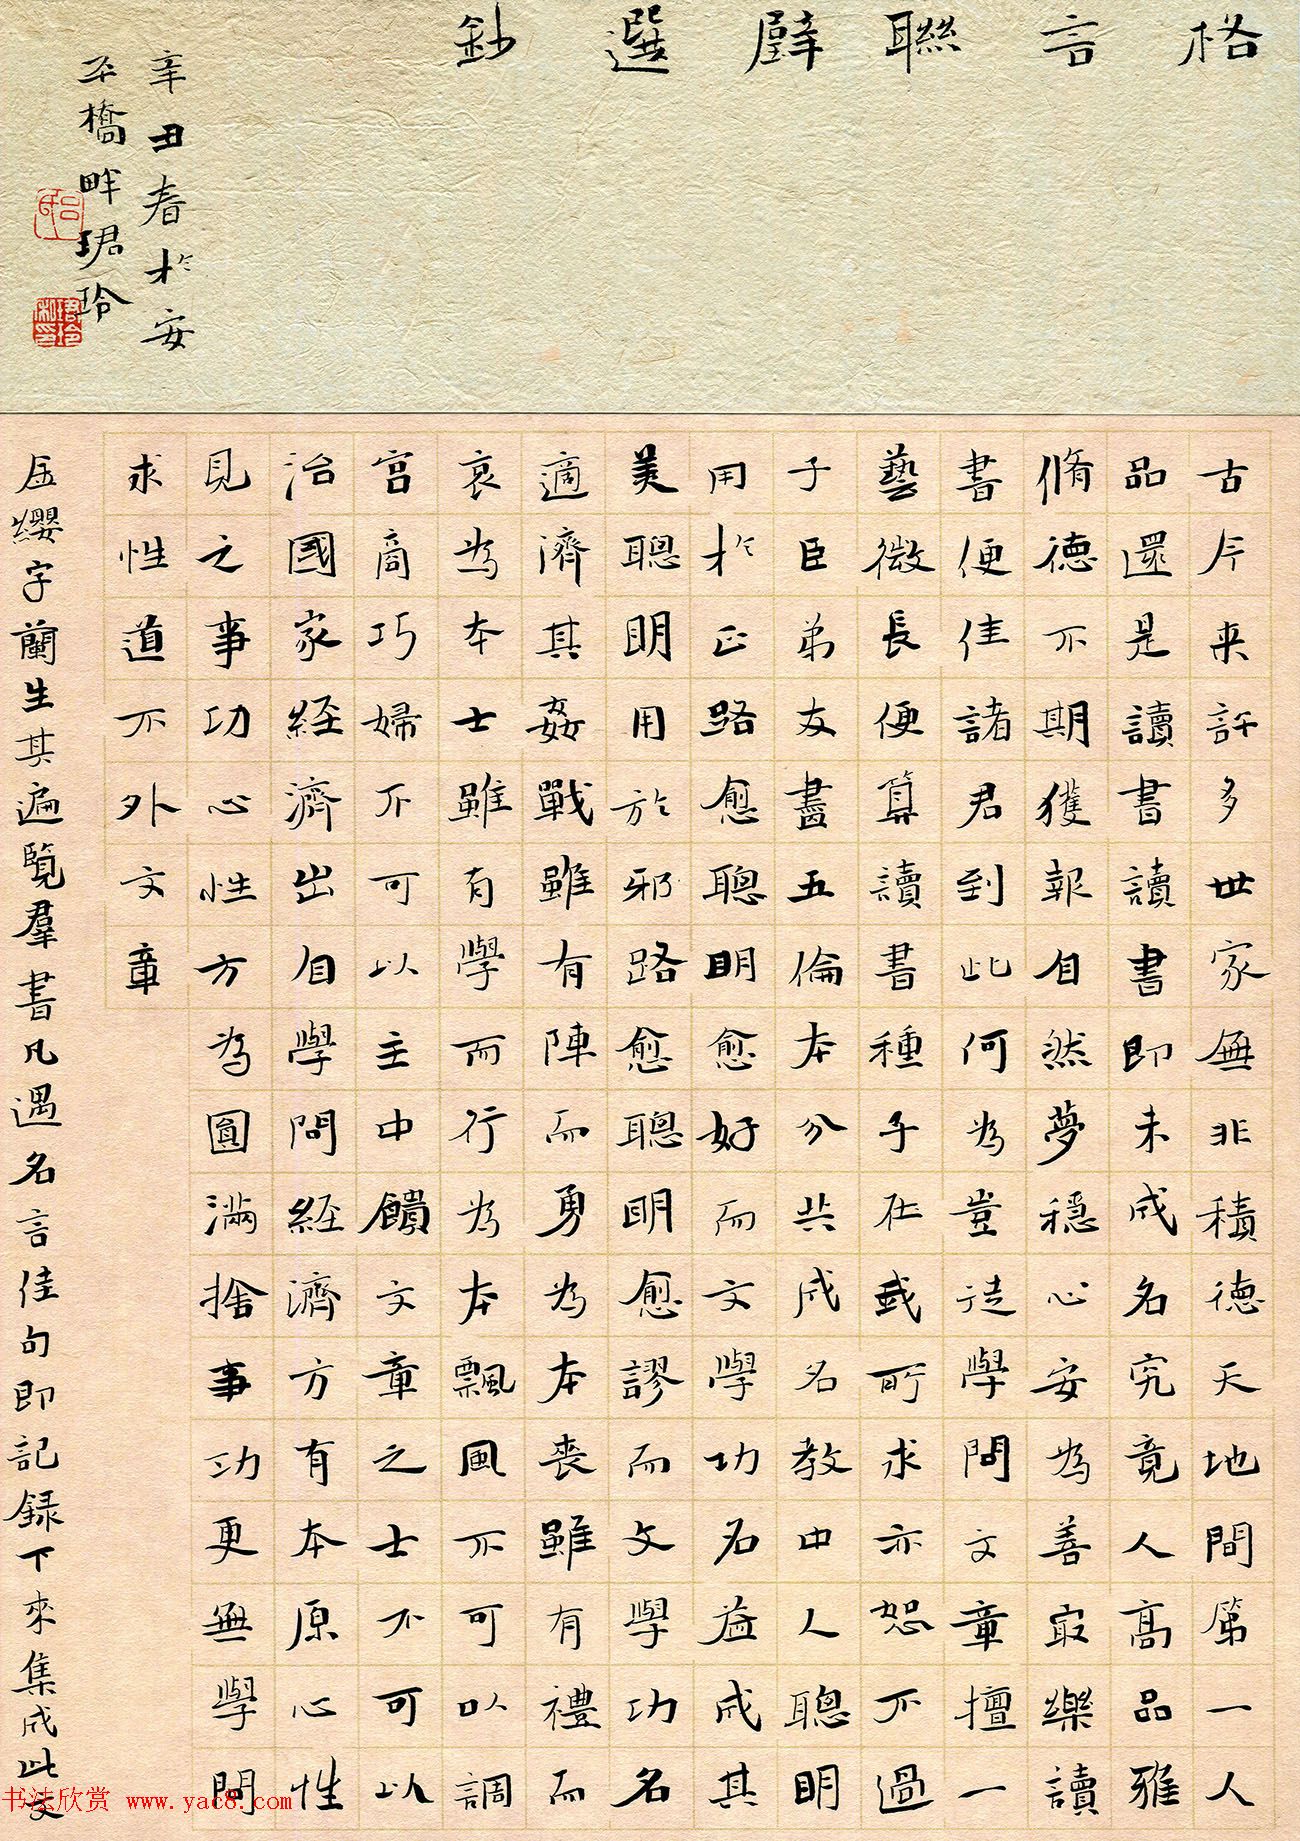 格言聯璧選鈔
辛丑春於安
平橋畔珺玲
古今来許多世家無非積德天地間第一人
品還是讀書讀書即未成名究竟人高品雅
脩德不期獲報自然夢穩心安為善最樂讀
書便佳諸君到此何為豈徒學問文章擅一
藝微長便算讀書種子在我所求亦恕不過
子臣弟友盡五倫本分共成名教中人聰明
用於正路愈聰明愈好而文學功名益成其
美聰明用於邪路愈聰明愈謬而文學功名
適濟其姦戰雖有陣而勇為本喪雖有禮而
哀為本士雖有學而行為本飄風不可以調
宮商巧婦不可以主中饋文章之士不可以
治國家経濟出自學問経濟方有本原心性
見之事功心性方為圓滿捨事功更無學問
求性道不外文章
金纓字蘭生其遍覽羣書凡遇名言佳句即記録下來集成此文
书法欣赏 www.yac8.com